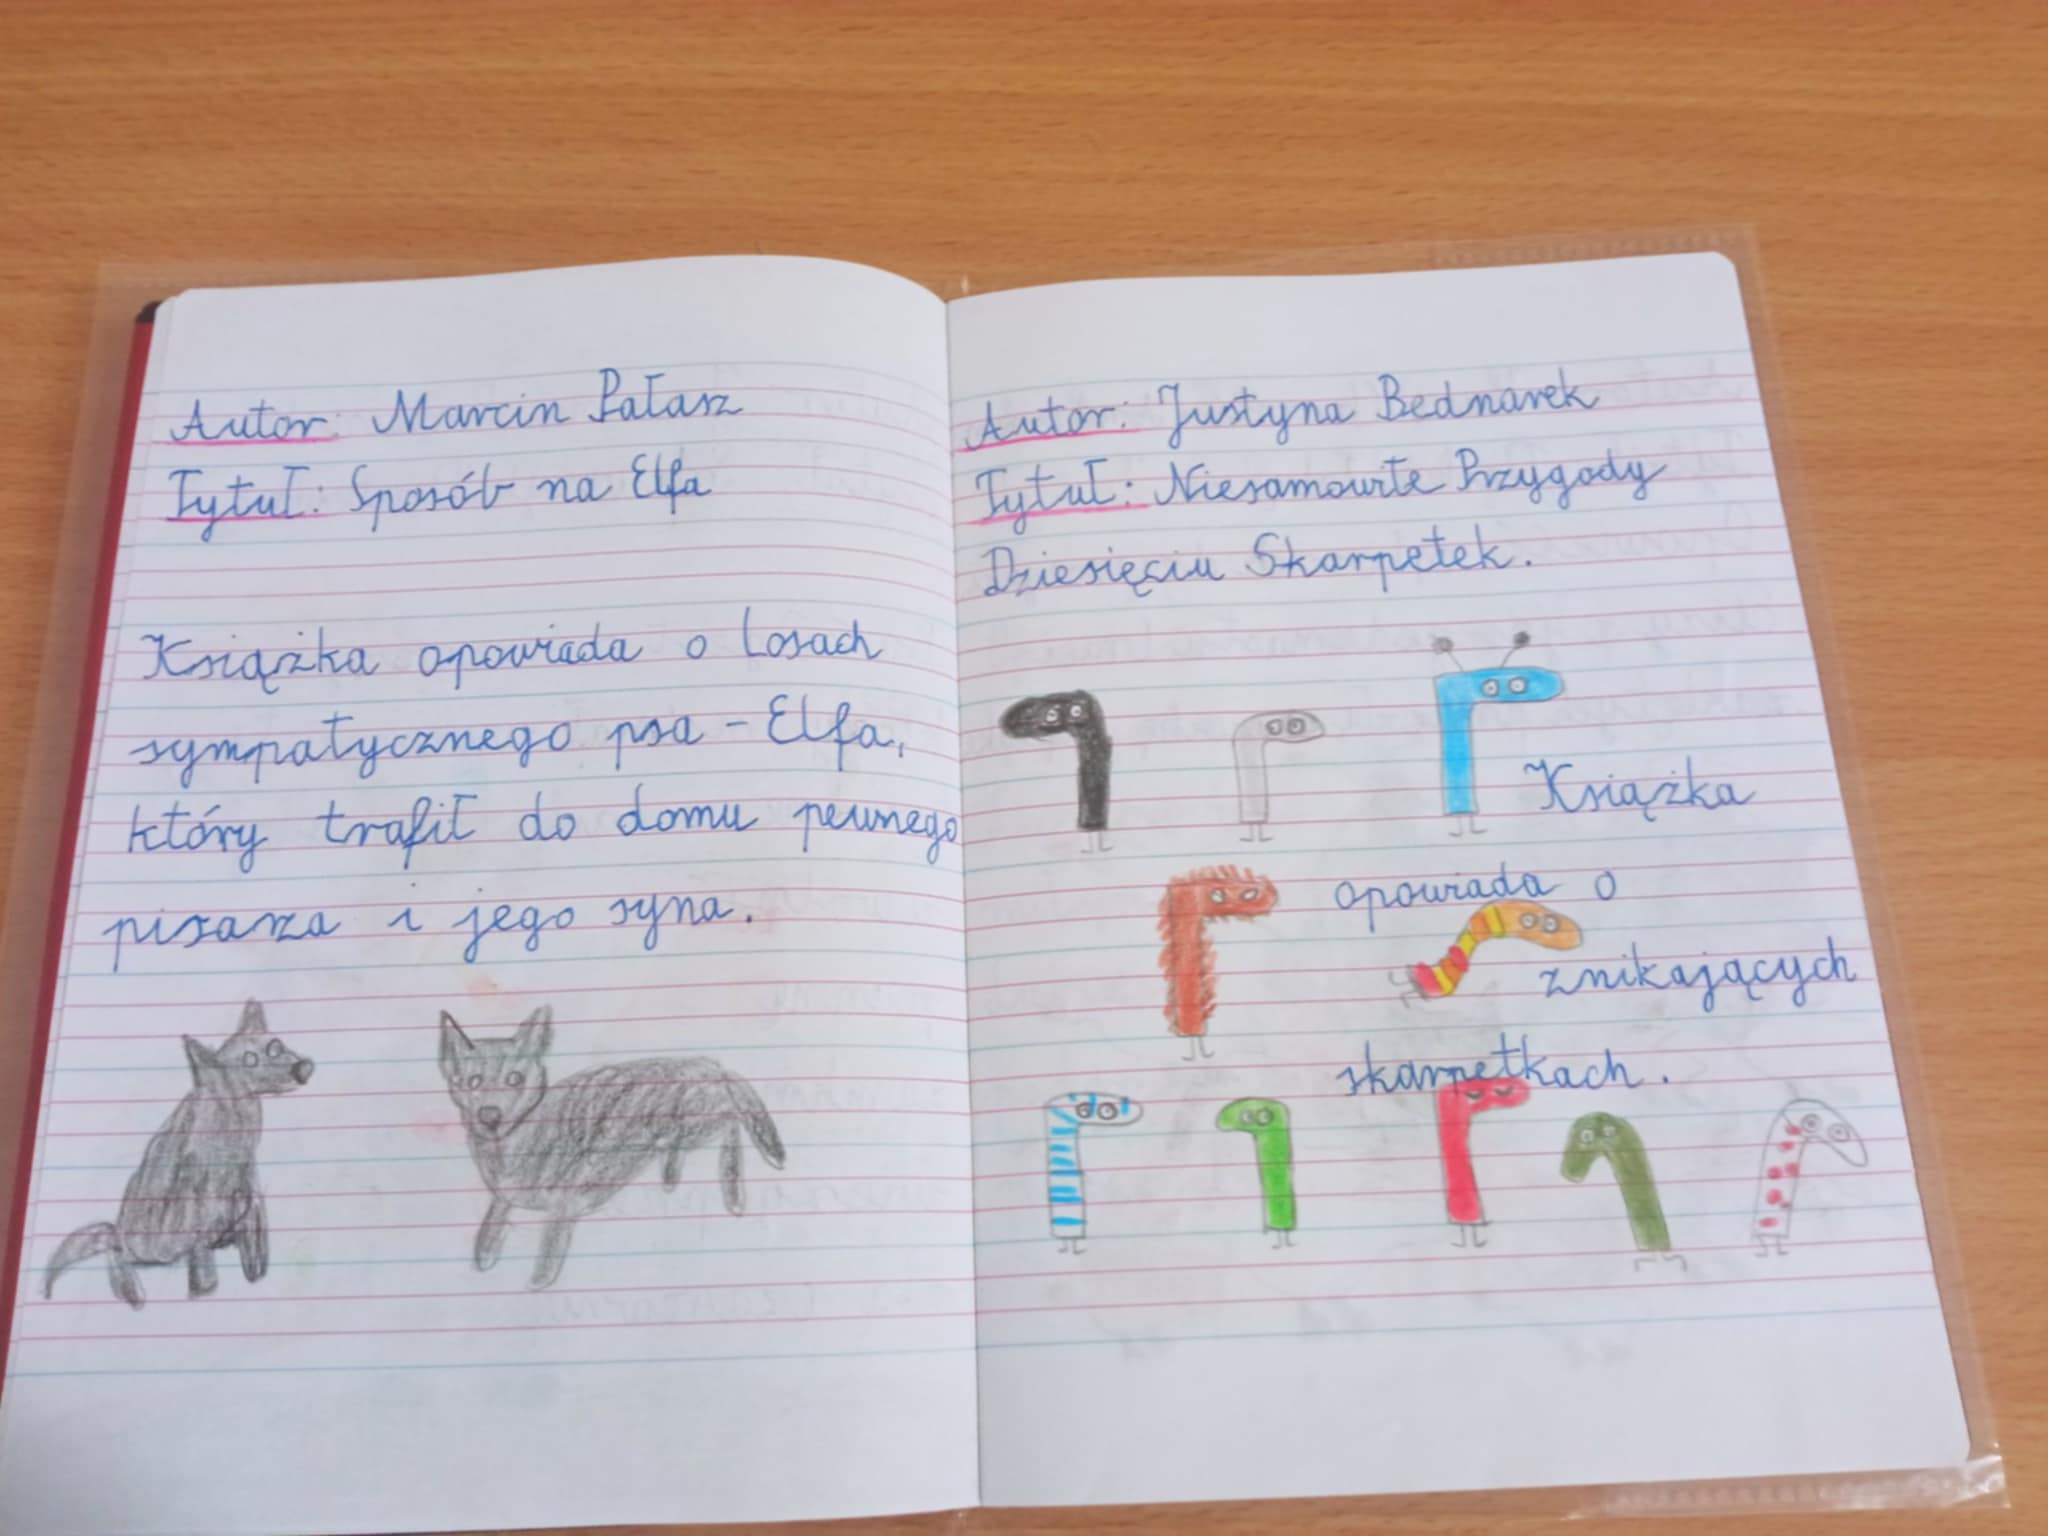 Autor: Marcin Pałasz
Tytuł: Sposób na Elfa
Książka opowiada o losach
sympatycznego psa - Elfa,
który trafił do domu pewnego
pisarza i jego syna.
Autor: Justyna Bednarek
Tytuł: Niesamowite Przygody
Dziesięciu Skarpetek.
Książka
opowiada o
znikających
skarpetkach.